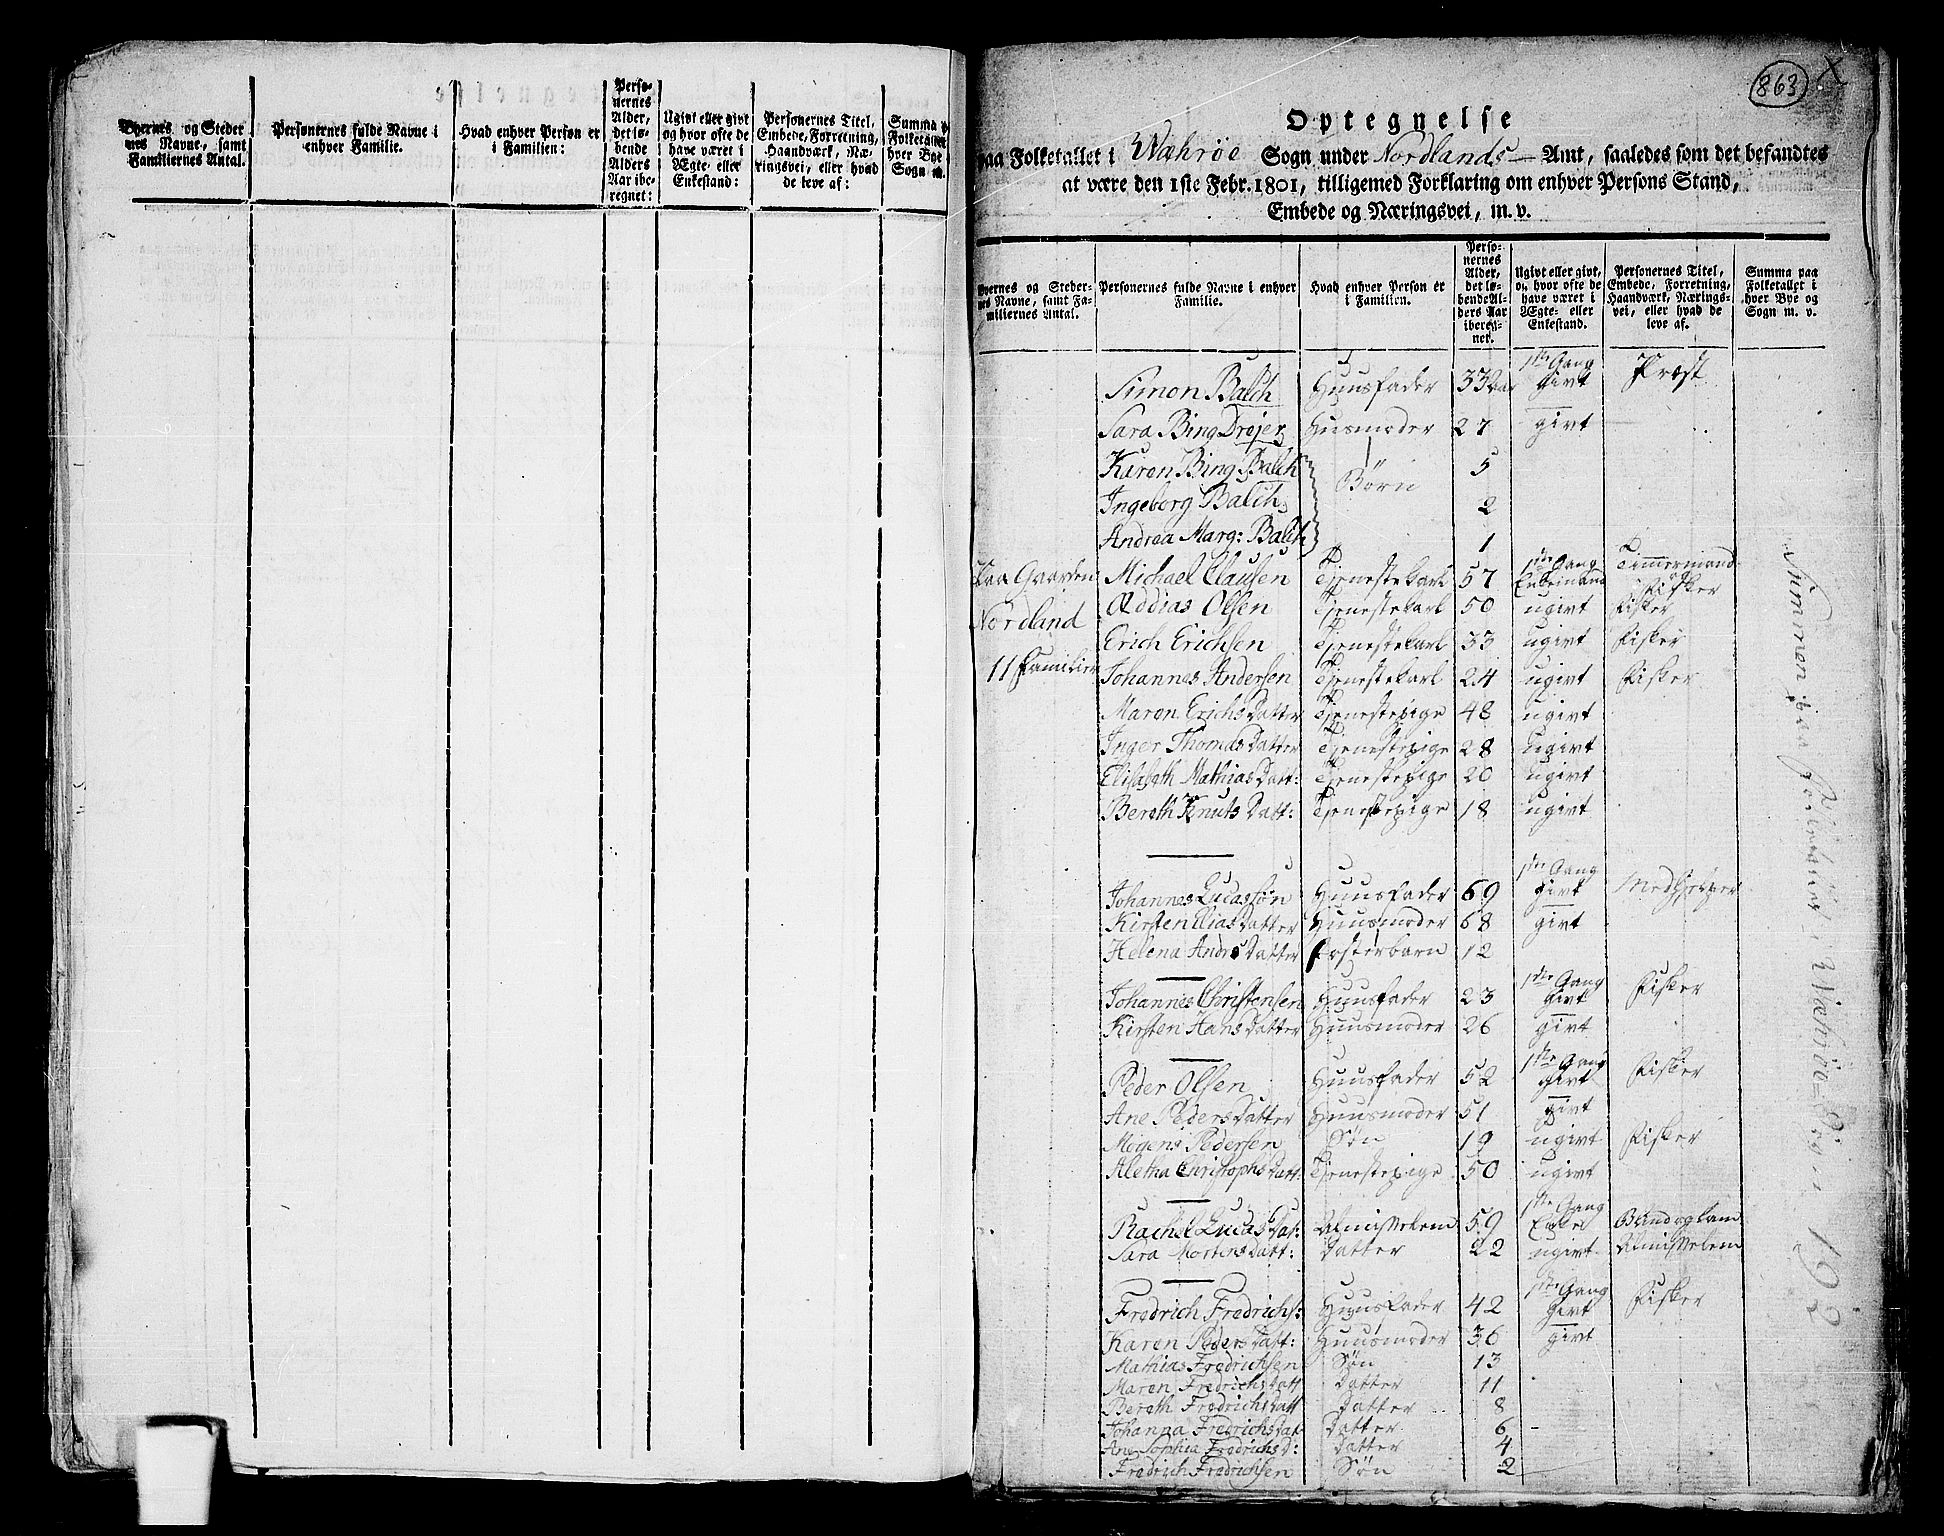 Byernes og Steder
nes Navne, samt
Familiernes Antal.
Personernes fulde Navne i
enhver Familie.
Hvad enhver Person er
i Familien:
Perso-
nernes
Alder,
det lø-
bende
Alders
Aar ibe-
regnet:
Ugivt eller givt
og hvor ofte de
have været i
Ægte- eller
Enkestand:
Personernes Titel,
Embede, Forretning,
Haandværk, Næ-
ringsvei, eller hvad
de leve af:
Summa p
Folketallet
hver Bye
Sogn m.
863 X
Optegnelse
paa Folketallet i Wæhrøe Sogn under Nordlands Amt, saaledes som det befandtes
at være den 1ste Febr. 1801, tilligemed Forklaring om enhver Persons Stand,
Embede og Næringsvei, m. v.
Byernes og Steder-
nes Navne, samt Fa-
miliernes Antal.
Personernes fulde Navne i enhver
Familie.
Hvad enhver Person er
i Familien.
Perso-
nernes
Alder,
det lø-
bende Al-
ders Aar
iberegt-
net.
Ugivt eller givt,
og hvor ofte de
have været i
Ægte- eller
Enkestand.
Personernes Titel,
Embede, Forretning,
Haandværk, Nærings-
vei, eller hvad de
leve af.
Summa paa
Folketallet i
hver Bye og
Sogn m. v.
Simon Balch Huusfader 33 Aar 1ste Gang givt Præst
Sara Bing Drejer Husmoder 27 givt
Karen Bing Balch 5
Børn
Ingeborg Balch 2
Andrea Marg: Balch 1
Paa Gaarden Michael Clausen Tjenestekarl 57 1ste Gang Enkemand Timmermand og Fisker
Nordland Oddias Olsen Tjenestekarl 50 ugivt Fisker
Erich Erichsen Tjenestekarl 33 ugivt Fisker
11 Familier Johannes Andersen Tjenestekarl 24 ugivt Fisker
Maren Erichs Datter Tjenestepige 48 ugivt
Inger Thomas Datter Tjenestepige 28 ugivt
Elisabeth Mathias Datt: Tjenestepige 20 ugivt
Bereth Knuts Datt: Tjenestepige 18 ugivt
Johannes Lucassøn Huusfader 69 1ste Gang givt Medhjelper
Kirsten Elias Datter Huusmoder 68 givt
Helena Andrs Datter Fosterbarn 12
Johannes Christensen Huusfader 23 1ste Gang givt Fisker
Kirsten Hans Datter Huusmoder 26 givt
Peder Olsen Huusfader 52 1ste Gang givt Fisker
Ane Peders Datter Huusmoder 51 givt
Mogens Pedersen Søn 19 ugivt Fisker
Aletha Christophs Datt: Tjenestepige 50 ugivt
Rachel Lucas Dat: Almisselem 59 1ste Gang Enke Blind og lam
Sara Mortens Datt: Datter 22 ugivt Almisselem
Fredrich Fredrichs: Huusfader 42 1ste Gang givt Fisker
Karen Peders Datt: Huusmoder 36 givt
Mathias Fredrichsen Søn 13
Maren Fredrichs Datt Datter 11
Bereth Fredrichs Datt Datter 8
Johanna Fredrichs Dat Datter 6
Ane Sophia Fredrichs D: Datter 4
Fredrich Fredrichsen Søn 2
192